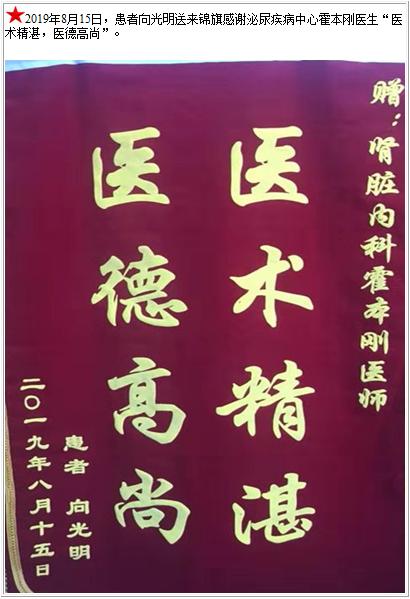 ★2019年8月15日，患者向光明送来锦旗感谢泌尿疾病中心霍本刚医生“医
术精湛，医德高尚”。
赠：肾脏内科霍本刚医师
医术精湛
医德高尚
患者 向光明
二〇一九年八月十五日